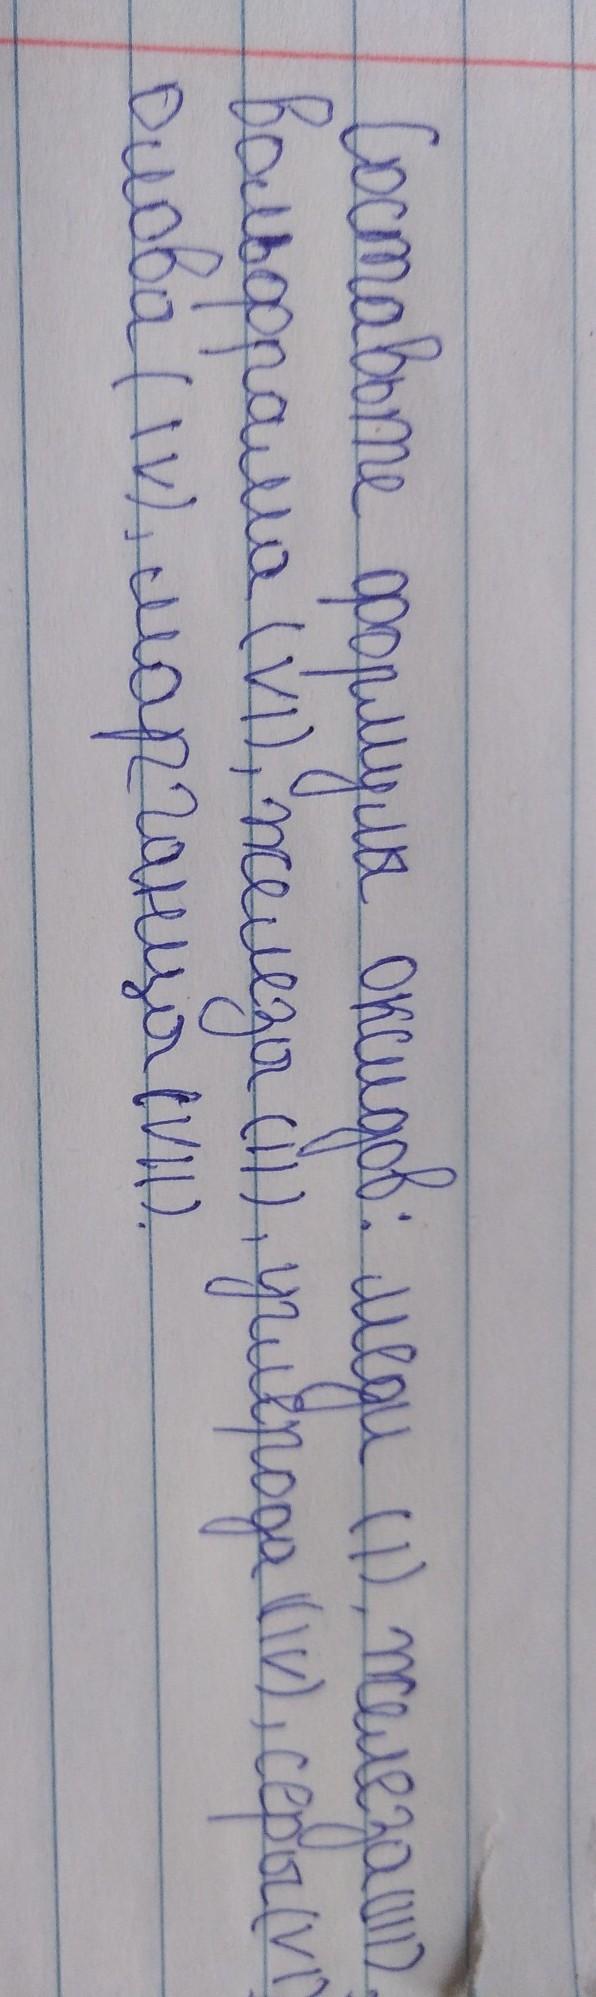 Составьте формулы оксидов: меди (I), железа (III),
вольфрама (VI), железа (II), углерода (IV), серы (VI)
олова (IV), марганца (VII).